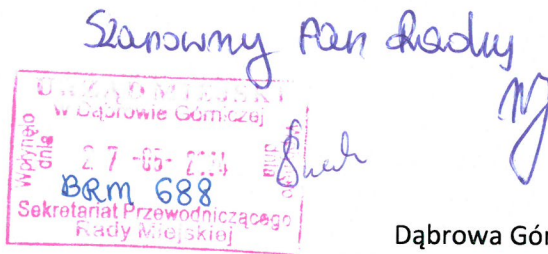 Szanowny Pan Radny
URZĄD MIEJSKI
w Dąbrowie Górniczej
Wpłynęło dnia
27 -05- 2024
BRM 688
Sekretariat Przewodniczącego
Rady Miejskiej
Dąbrowa Gór